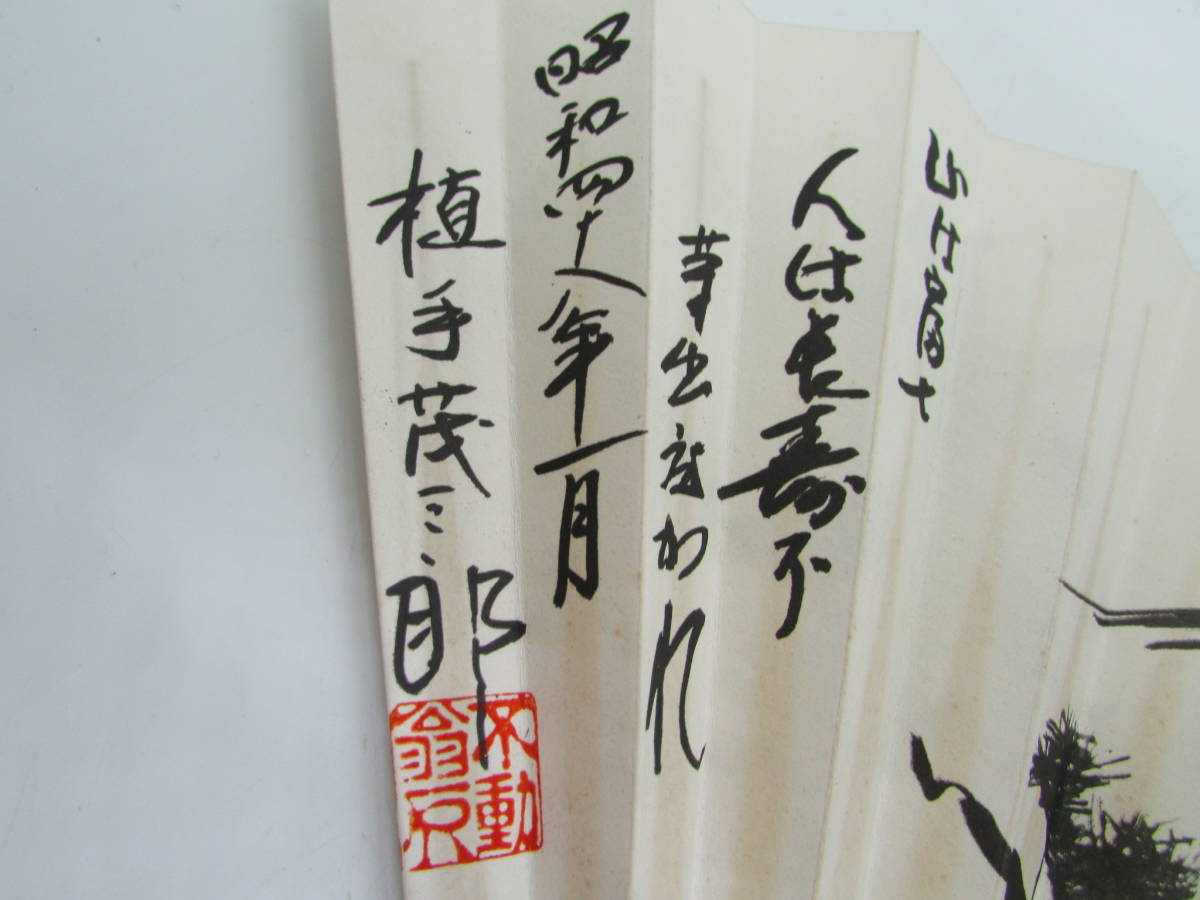 山は富士
人は長寿不
芽出度かれ
昭和四十八年一月
植手茂三郎
不動
翁